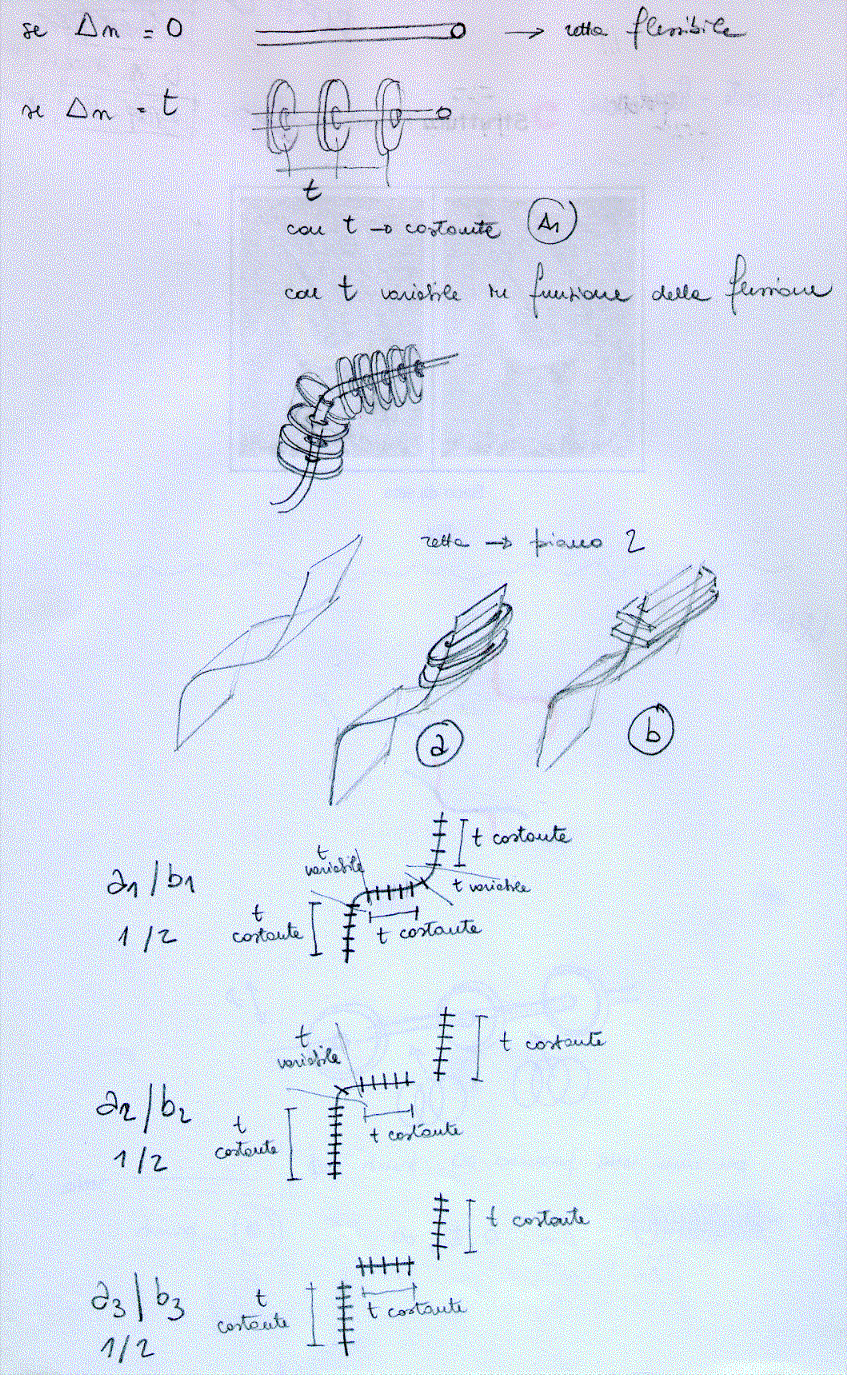 se Δn = 0 → retta flessibile
se Δn = t
t
con t → costante A1
con t variabile in funzione della flessione
retta → piano 2
a b
t costante
t variabile
a1/b1
t variabile
1/2
t costante
t costante
t costante
t variabile
a2/b2
t costante
t costante
1/2
t costante
a3/b3
t costante
t costante
1/2